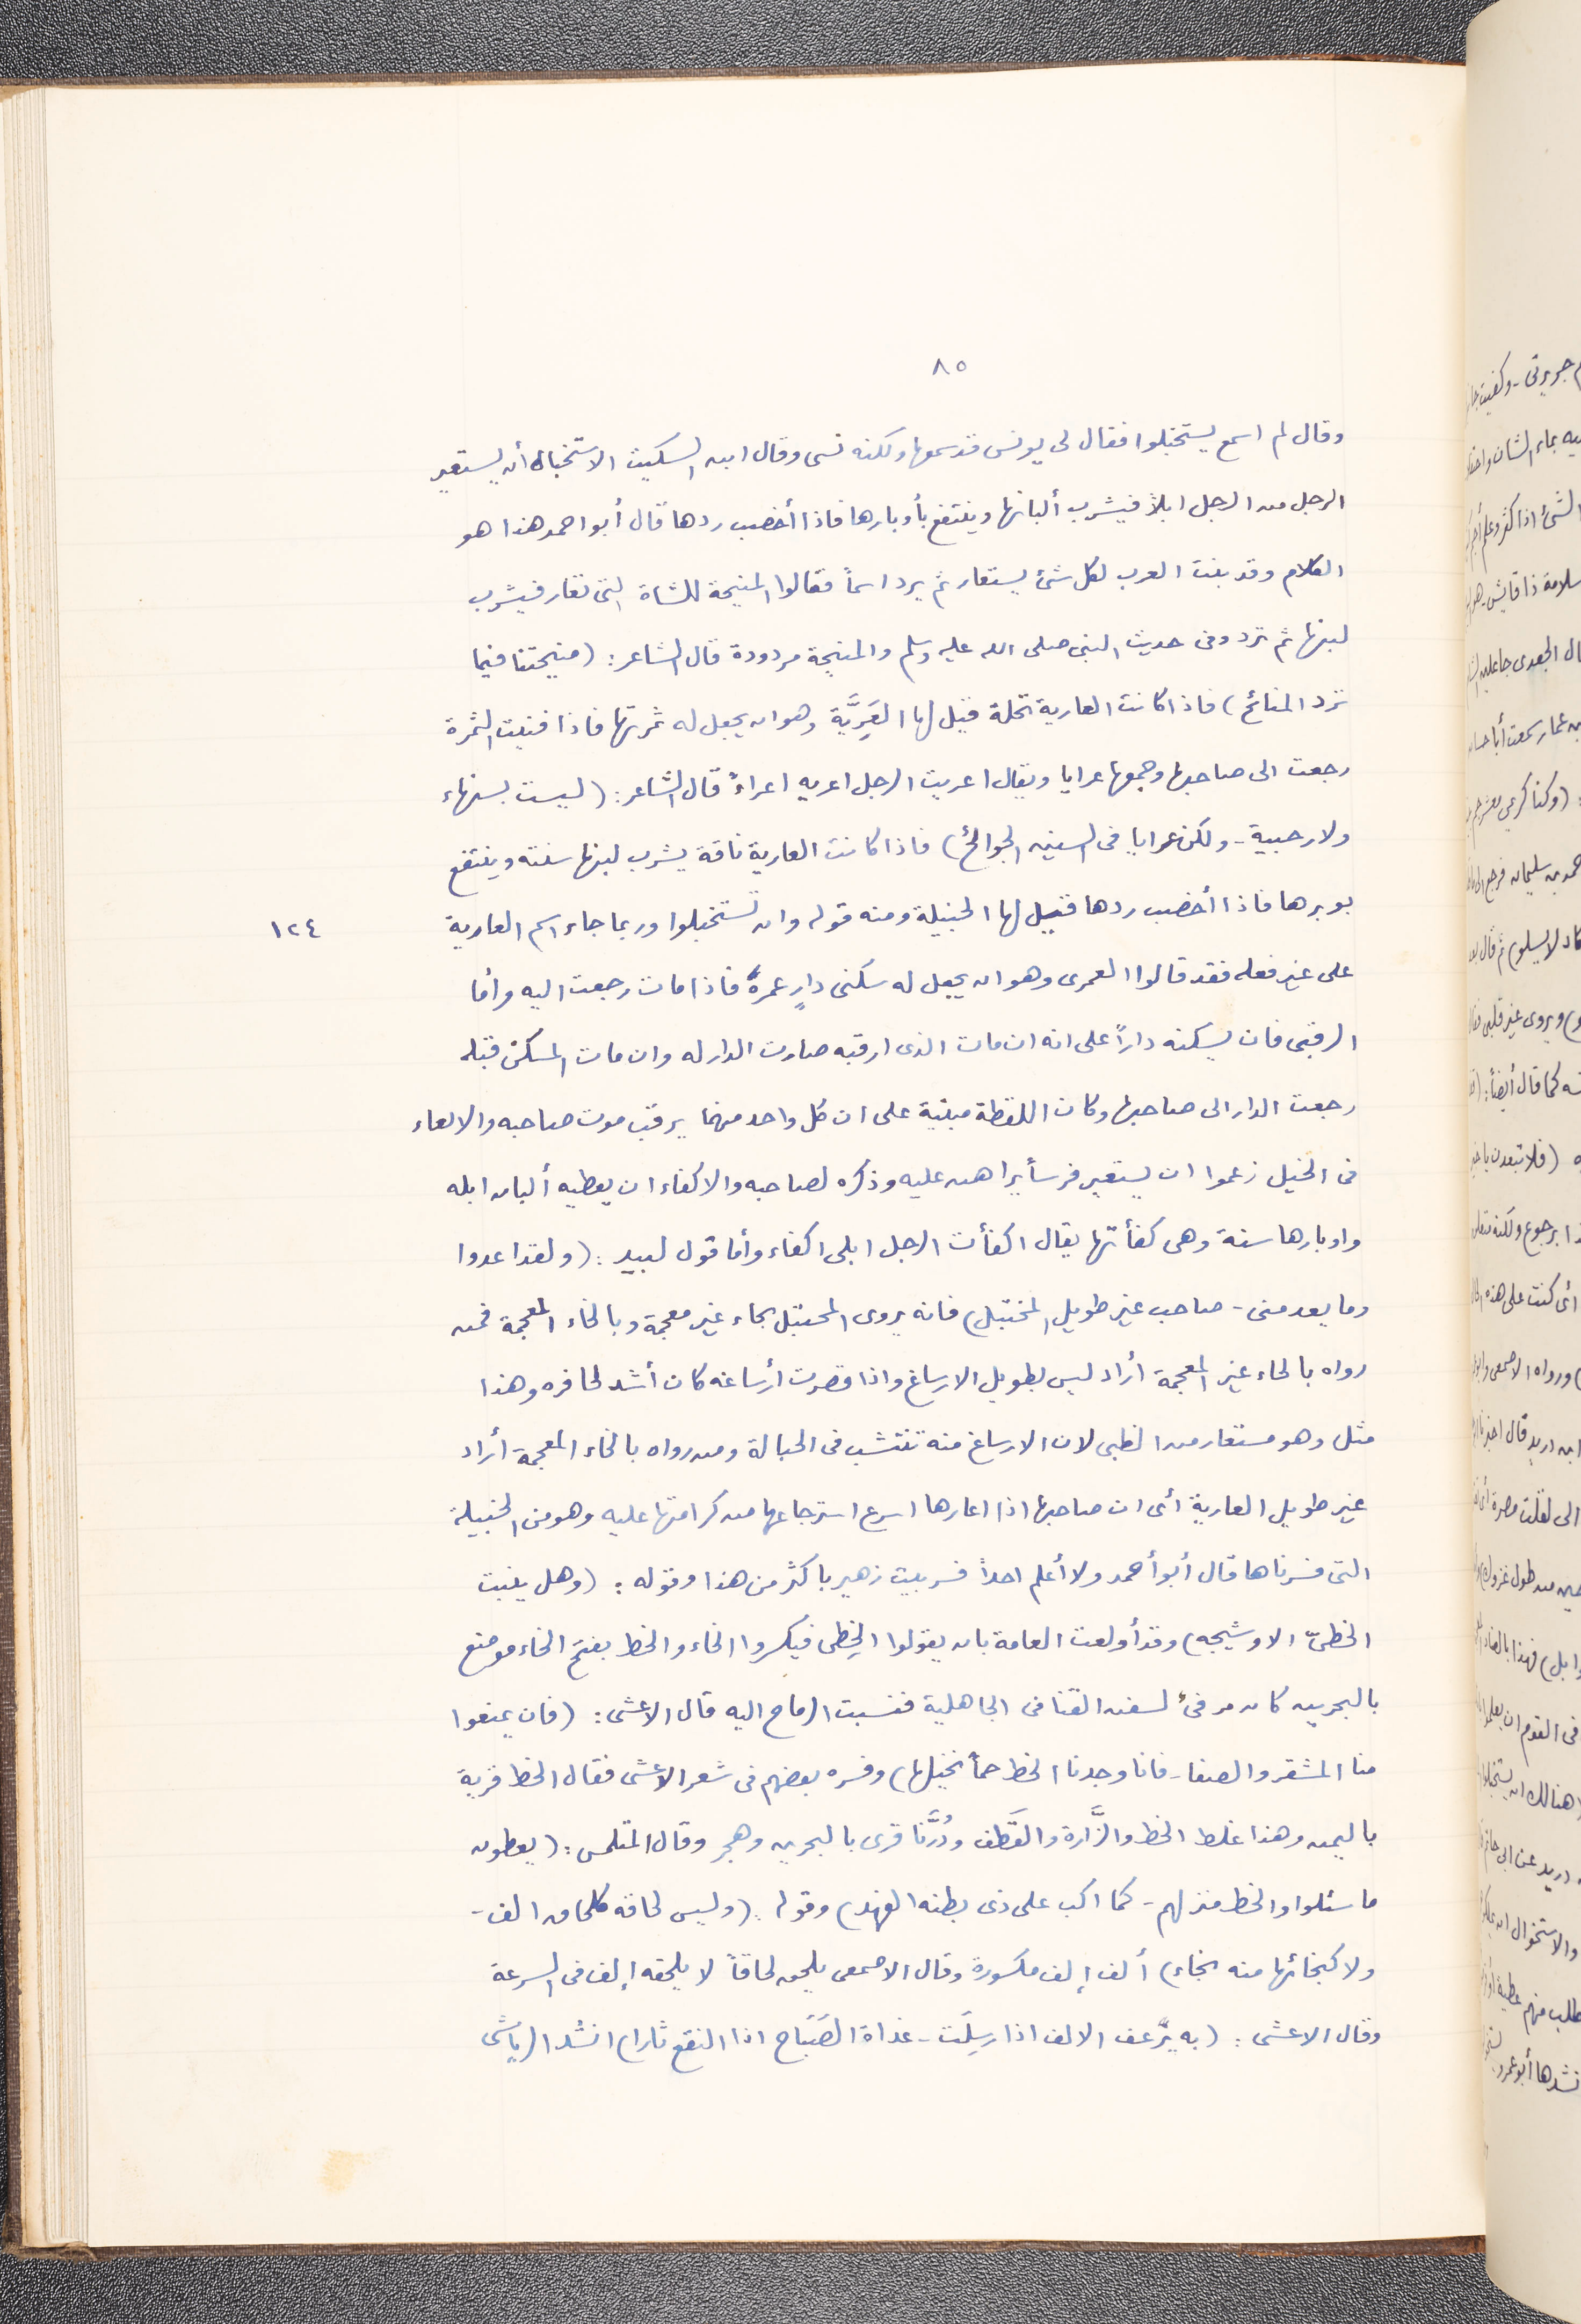 ٨٥
وقال لم اسمع يستخبلوا فقال لى يونس قد سمعها ولكنه نسى وقال ابن السكيت الاستخبال أن يستعير
الرجل من الرجل ابلاً فيشرب ألبانها وينتفع بأوبارها فاذا أخصب ردها قال أبو احمد هذا هو
الكلام وقد بنت العرب لكل شئ يستعار ثم يرد اسماً فقالوا المنيحة للشاة التى تعار فيشرب
لبنها ثم ترد وفى حديث النبى صلى الله عليه وسلم والمنيحة مردودة قال الشاعر: (منيحتنا فيما
ترد المنائح) فاذا كانت العارية نخلة قيل لها العَرِيَّة وهو ان يجعل له ثمرتها فاذا فنيت الثمرة
رجعت الى صاحبها وجمعها عرايا ويقال اعريت الرجل اعريه اعراءً قال الشاعر: (ليست بسنهاء
ولا رجبية - ولكن عرايا فى السنين الجوائح) فاذا كانت العارية ناقة يشرب لبنها سنته وينتفع
بوبرها فاذا أخصب ردها قيل لها الخبيلة ومنه قوله وان تستخبلوا وربما جاء اسم العارية
١٢٤
على غير فعله فقد قالوا العمرى وهو ان يجعل له سكنى دارٍ عمرهُ فاذا مات رجعت اليه وأما
الرقبى فان يسكنه داراً على انه ان مات الذى ارقبه صارت الدار له وان مات المسكن قبله
رجعت الدار الى صاحبها وكان اللفظة مبنية على ان كل واحد منهما يرقب موت صاحبه والالعاء
فى الخيل زعموا ان يستعير فرساً يراهن عليه وذكره لصاحبه والاكفاء ان يعطيه ألبان ابله
واوبارها سنة وهى كفأتها يقال اكفأت الرجل ابلى اكفاء وأما قول لبيد: (ولقد اعدوا
وما يعدمنى - صاحب غير طويل المختبل) فانه يروى المحتبل بحاء غير معجمة وبالخاء المعجمة فمن
رواه بالحاء غير المعجمة أراد ليس بطويل الارساغ واذا قصرت أرساغه كان أشد لحافره وهذا
مثل وهو مستعار من الظبى لان الارساغ منه تنتشب فى الحبالة ومن رواه بالخاء المعجمة أراد
غير طويل العارية أى ان صاحبها اذا اعارها اسرع استرجاعها من كرامتها عليه وهو من الخبيلة
التى فسرناها قال أبو أحمد ولا أعلم احداً فسر بيت زهير باكثر من هذا وقوله: (وهل ينبت
الخطىّ الا وشيجه) وقد أولعت العامة بان يقولوا الخِطى فيكسروا الخاء والخط بفتح الخاء موضع
بالبحرين كان مرفئ لسفن القنا فى الجاهلية فنسبت الرماح اليه قال الاعشى: (فان يمنعوا
منا المشقر والصفا - فانا وجدنا الخط جماً نخيلها) وفسره بعضهم فى شعر الاعشى فقال الخط قرية
باليمن وهذا غلط الخط والزَّارة والقَطَف ودُرَّنا قرى بالبحرين وهجر وقال المتلمس: (يعطون
ما سئلوا والخط منزلهم - كما اكب على ذى بطنه الفهد) وقوله: (وليس لحاقه كلحاق الف -
ولا كنجائها منه نجاء) ألف إلف مكسورة وقال الاصمعى يلحق لحاقاً لا يلحقه إلف فى السرعة
وقال الاعشى: (به يرْعف الالف اذا رسِلَت - غداة الصَبَاح اذا النقع ثارا) انشد الرياشى